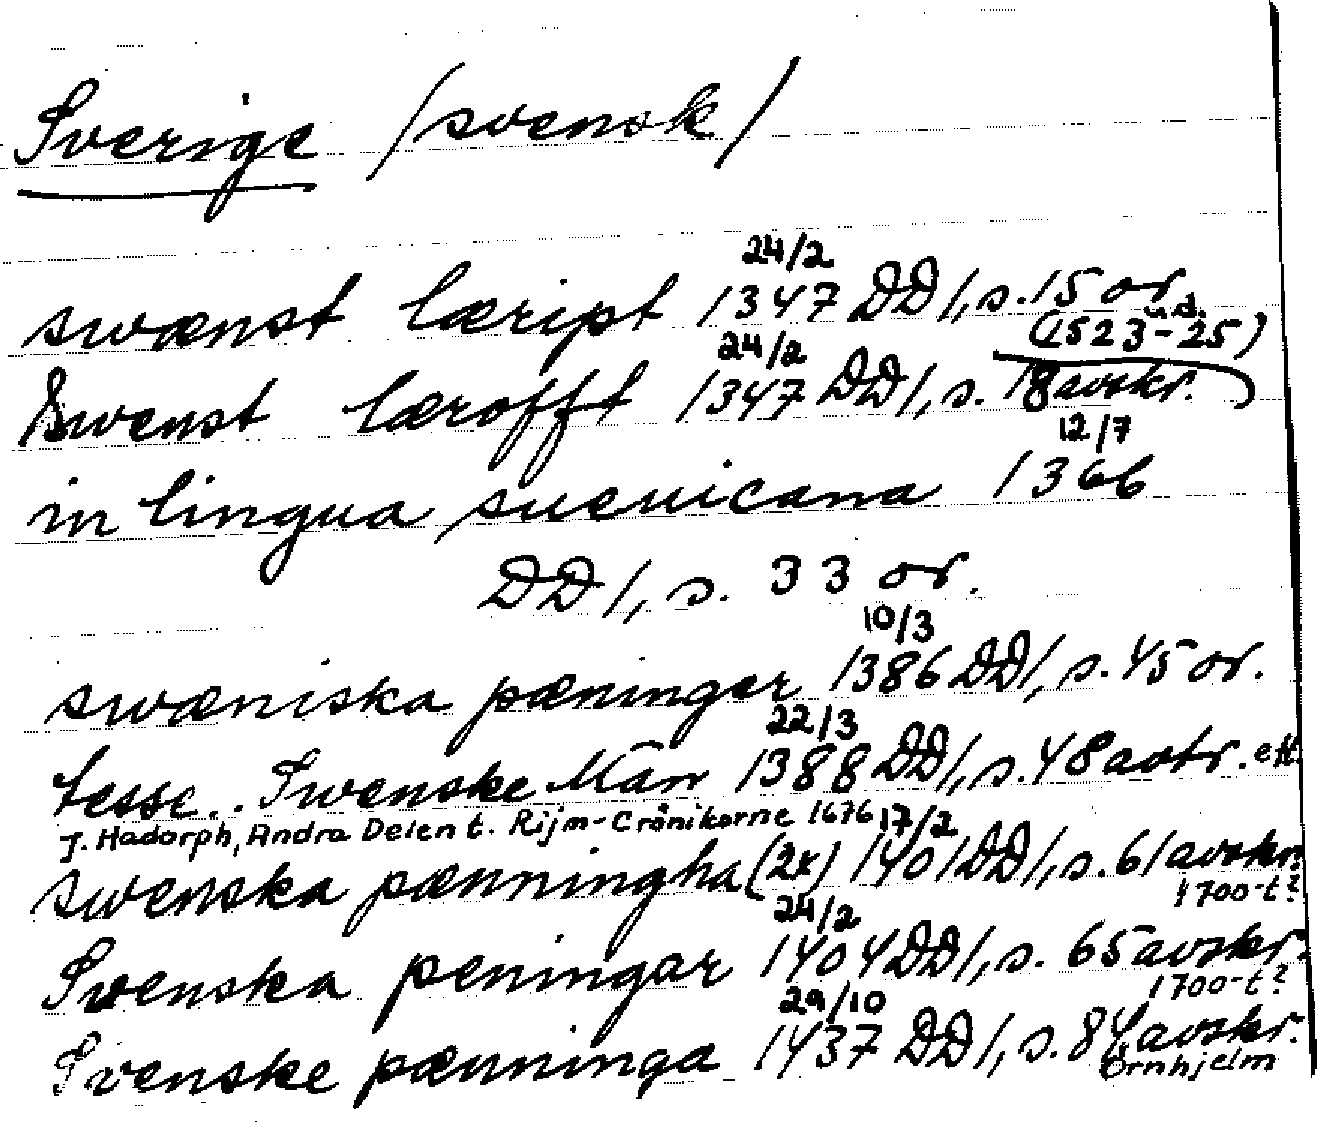 Sverige /svensk/
24/2
swænst læript 1347 DD1, s. 15 or.
u.d.
(1523-25)
24/2
Swenst lærofft 1347 DD1, s. 18 avskr.
12/7
in lingua sueuicana 1366
DD1, s. 33 or.
10/3
swæniska pæningar 1386 DD1, s. 45 or.
22/3
tesse.. Swenske Män 1388 DD1, s. 48 avtr. eft.
J. Hadorph, Andra Delen t. Rijm-Crönikorne 1676
17/2
swenska pænningha (2x) 1401 DD1, s. 61 avskr.
1700-t?
24/2
Svenska peningar 1404 DD1, s. 65 avskr.
1700-t?
29/10
Svenske pænninga 1437 DD1, s. 84 avskr.
Örnhjelm